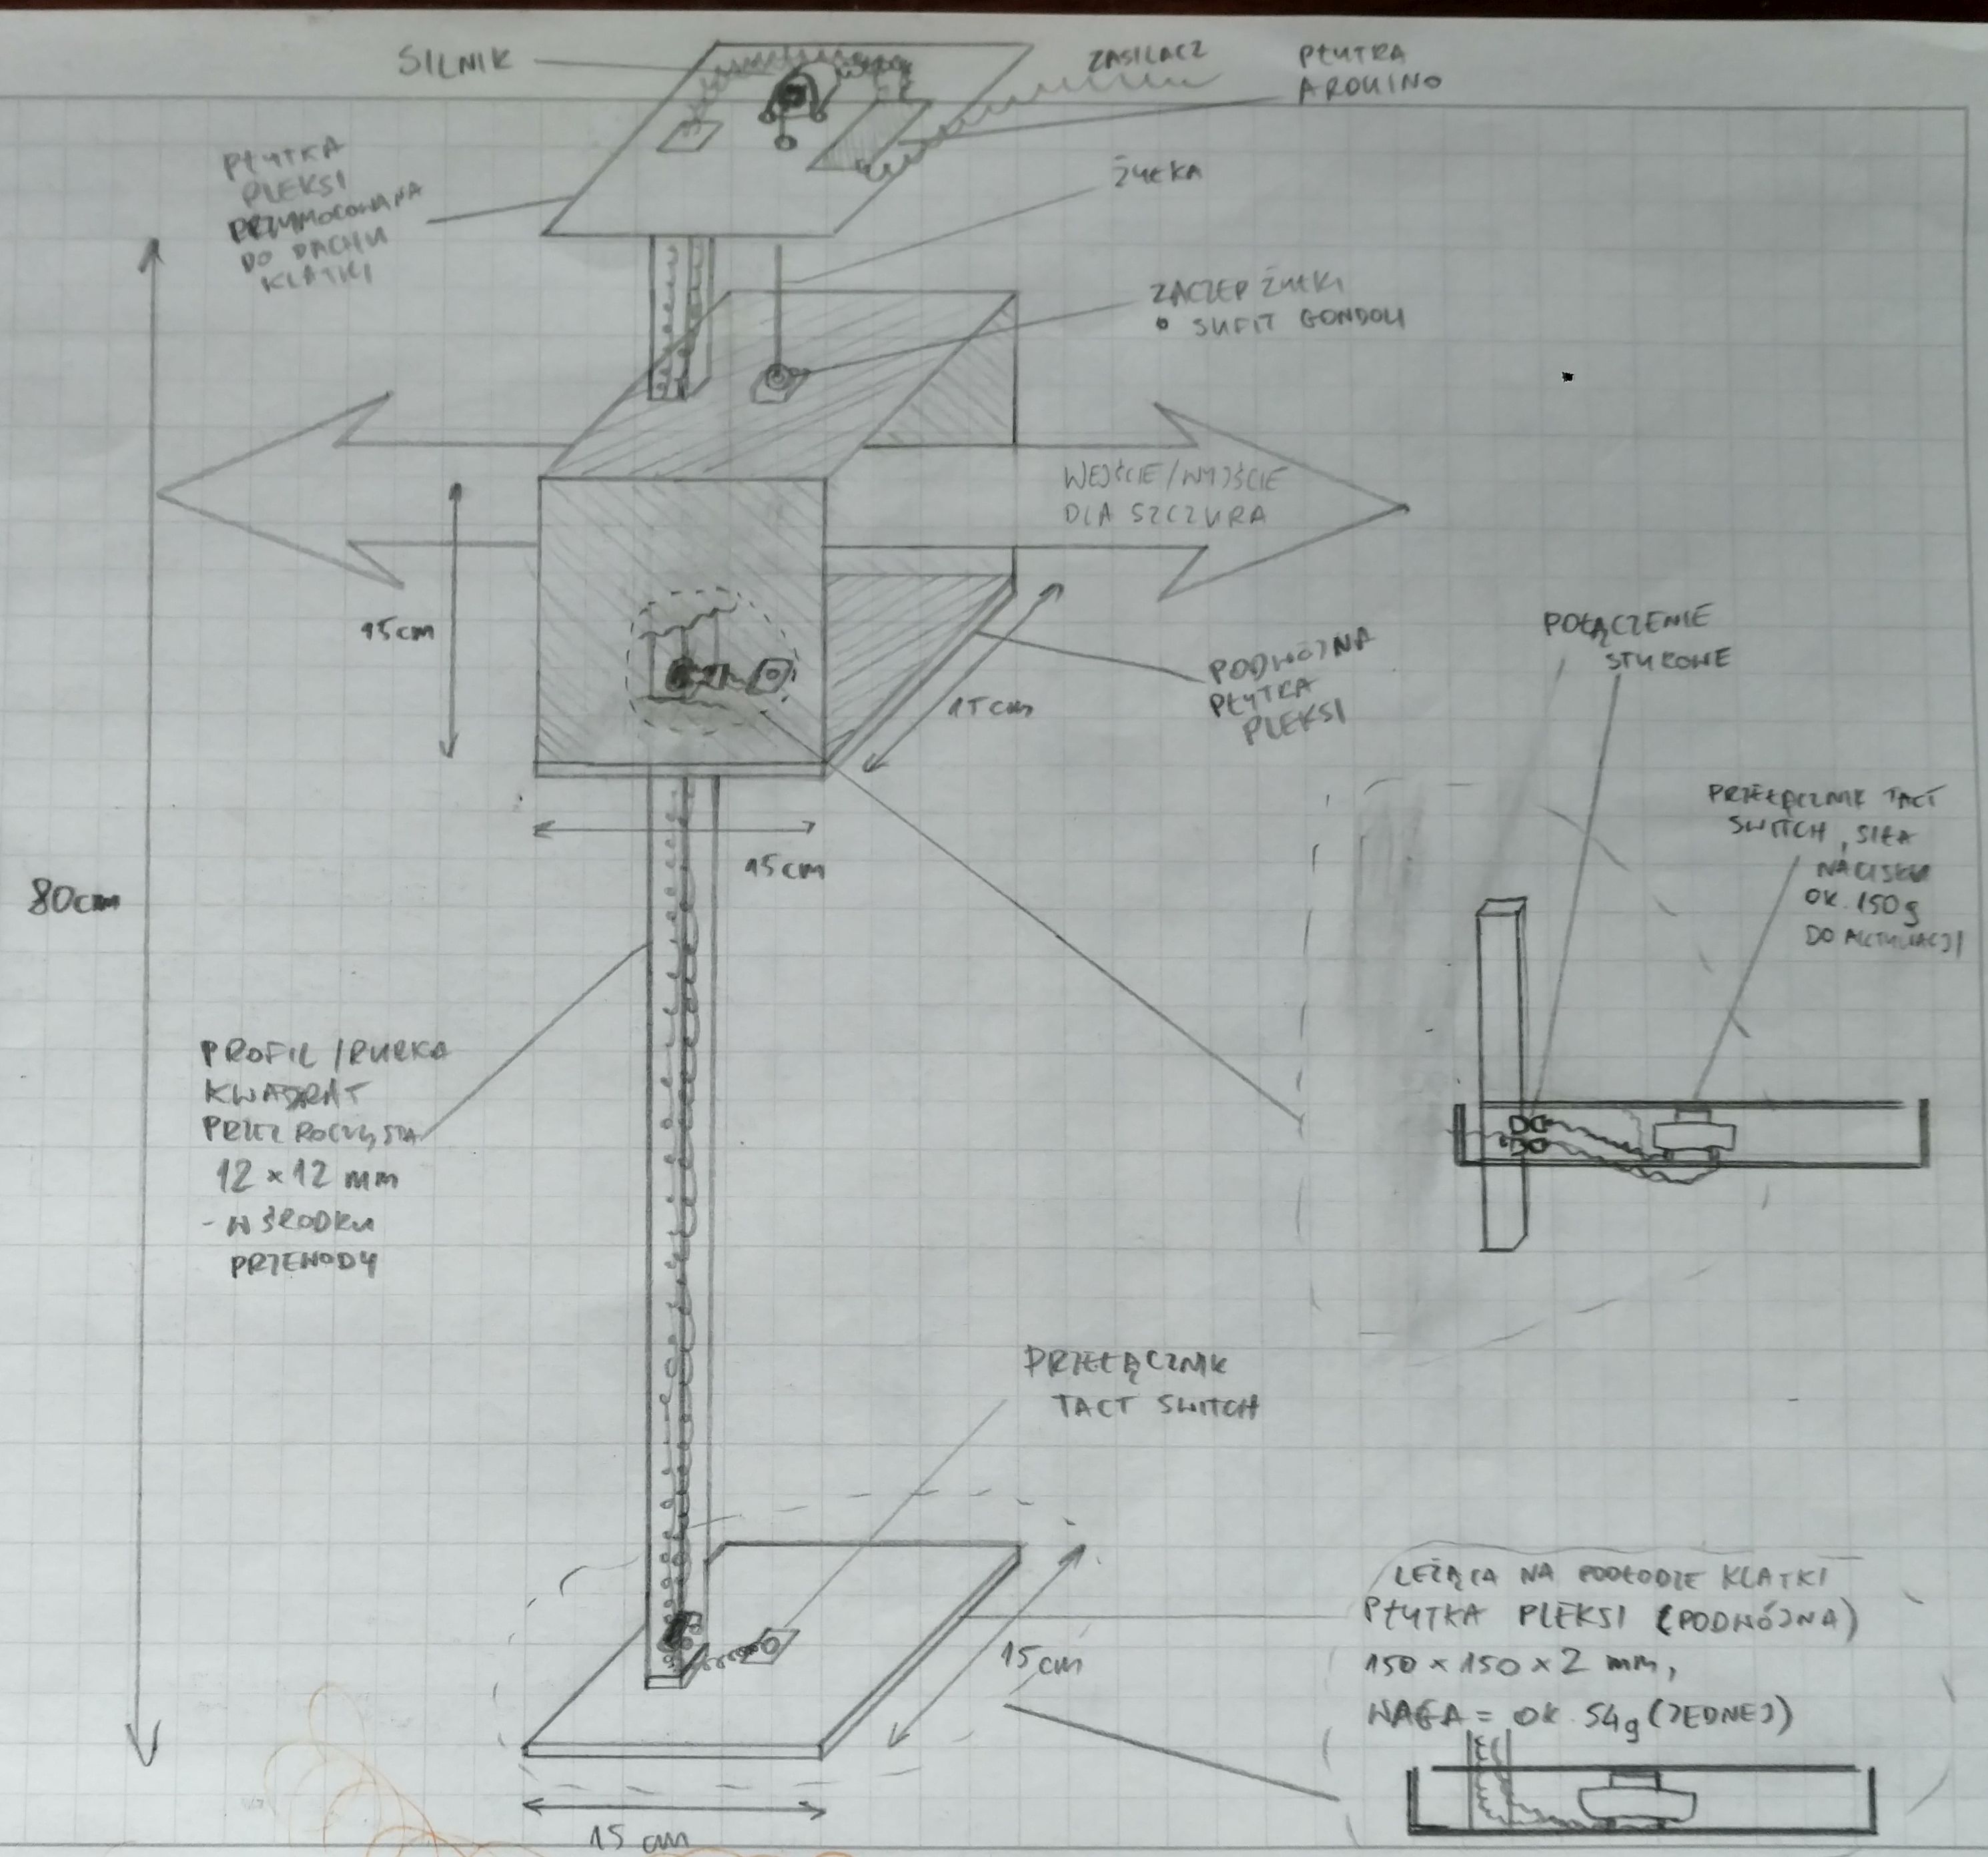 SILNIK
ZASILACZ
PŁYTKA
ARDUINO
PŁYTKA
PLEKSI
PRZYMOCOWANA
DO DACHU
KLATKI
ŻYŁKA
ZACZEP ŻYŁKI
SUFIT GONDOLI
WEJŚCIE/WYJŚCIE
DLA SZCZURA
15cm
POŁĄCZENIE
STYKOWE
PODWÓJNA
PŁYTKA
PLEKSI
15cm
PRZEŁĄCZNIK TACT
SWITCH, SIŁA
NACISKU
OK. 150g
DO AKTYWACJI
15cm
80cm
PROFIL /RURKA
KWADRAT
PRZEZROCZYSTA
12 x 12 mm
- W ŚRODKU
PRZEWODY
PRZEŁĄCZNIK
TACT SWITCH
LEŻĄCA NA PODŁODZE KLATKI
PŁYTKA PLEKSI (PODWÓJNA)
150 x 150 x 2 mm,
WAGA = OK. 54g (JEDNEJ)
15cm
15 cm